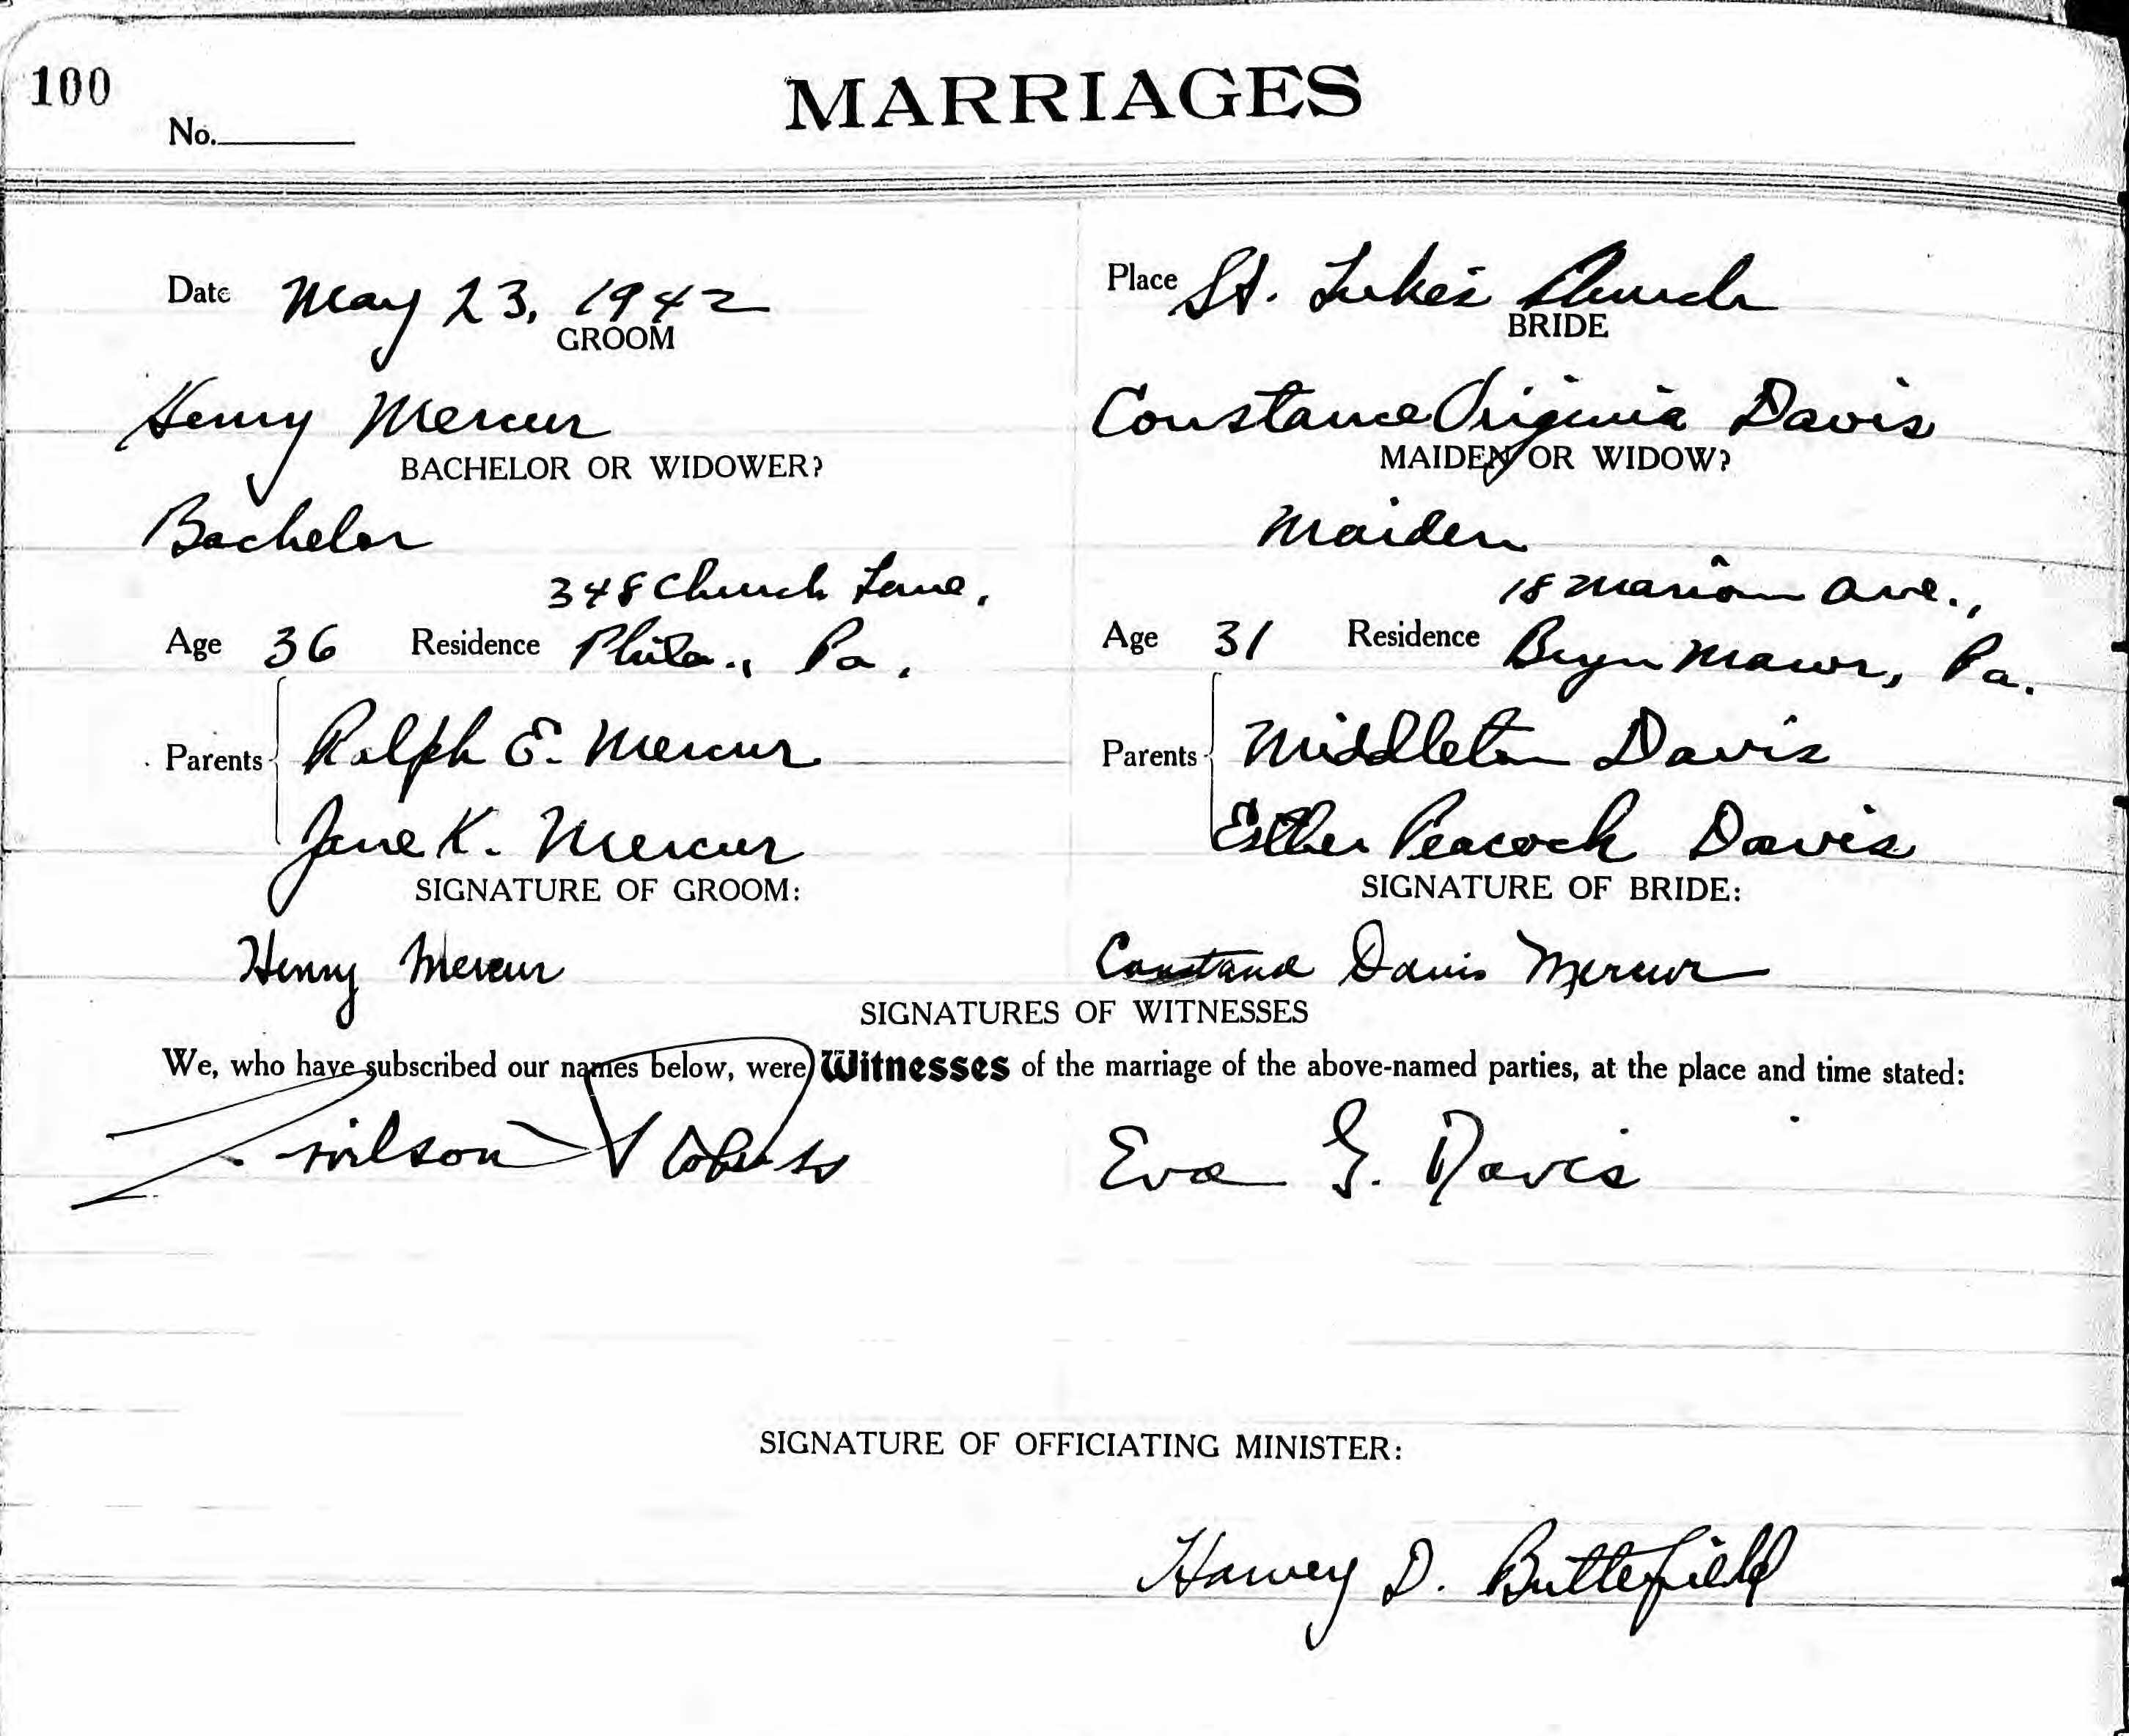 100
No.
MARRIAGES
Date May 23, 1942
Place St. Luke's Church
GROOM
BRIDE
Henry Mercur
Constance Virginia Davis
BACHELOR OR WIDOWER?
MAIDEN OR WIDOW?
Bachelor
Maiden
348 Church Lane,
18 Marion Ave.,
Age 36 Residence Phila., Pa.
Age 31 Residence Bryn Mawr, Pa.
Parents Ralph E. Mercur
Parents Middleton Davis
Jane K. Mercur
Esther Peacock Davis
SIGNATURE OF GROOM:
SIGNATURE OF BRIDE:
Henry Mercur
Constance Davis Mercur
SIGNATURES OF WITNESSES
We, who have subscribed our names below, were Witnesses of the marriage of the above-named parties, at the place and time stated:
Wilson Roberts
Eva G. Davis
SIGNATURE OF OFFICIATING MINISTER:
Harvey D. Butterfield